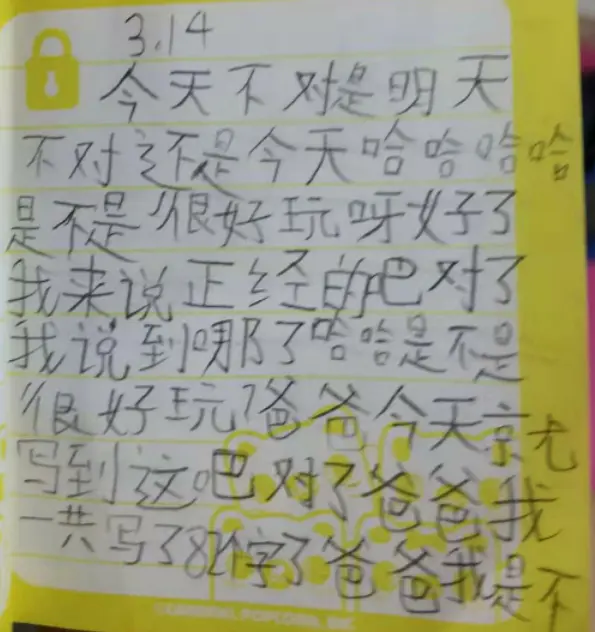 3.14
今天不对是明天
不对这还是今天哈哈哈哈
是不是很好玩呀好了
我来说正经的吧对了
我说到哪了哈哈是不是
很好玩?爸爸今天就
写到这吧对了爸爸我
一共写了82个字了爸爸我是不